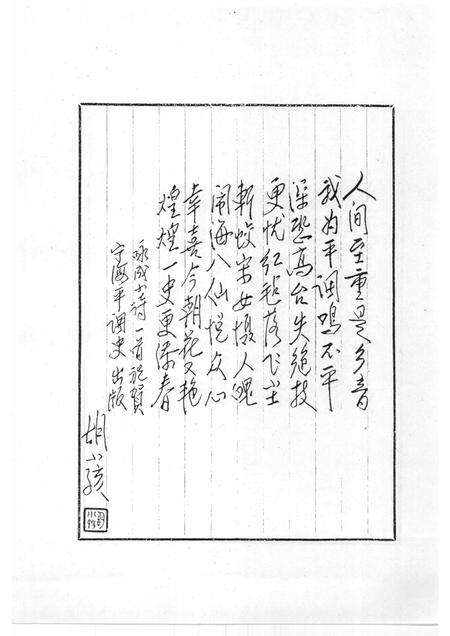 人间至重是乡音
我为平调鸣不平
深恐高台失绝技
更忧红毡落飞尘
斩蛟宋女摄人魄
闹海八仙悦众心
幸喜今朝花又艳
煌煌一史更添春
咏成小诗一首祝贺
宁海平调史出版
胡小孩